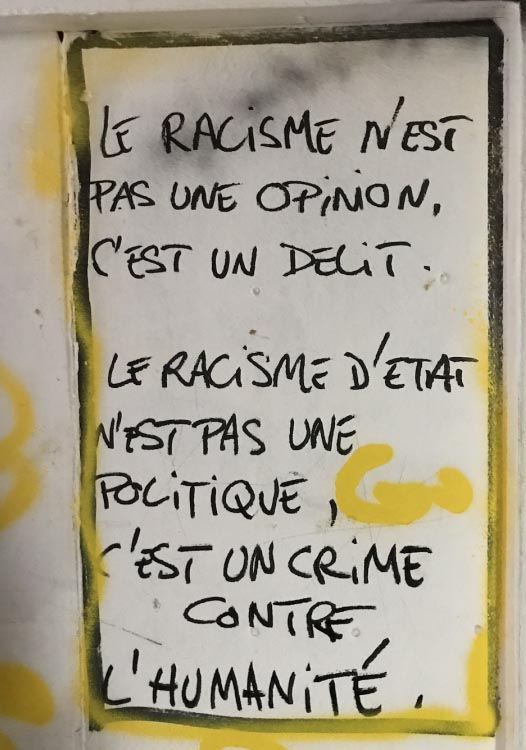 LE RACISME N'EST
PAS UNE OPINION,
C'EST UN DELIT.
LE RACISME D'ETAT
N'EST PAS UNE
POLITIQUE,
C'EST UN CRIME
CONTRE
L'HUMANITÉ.